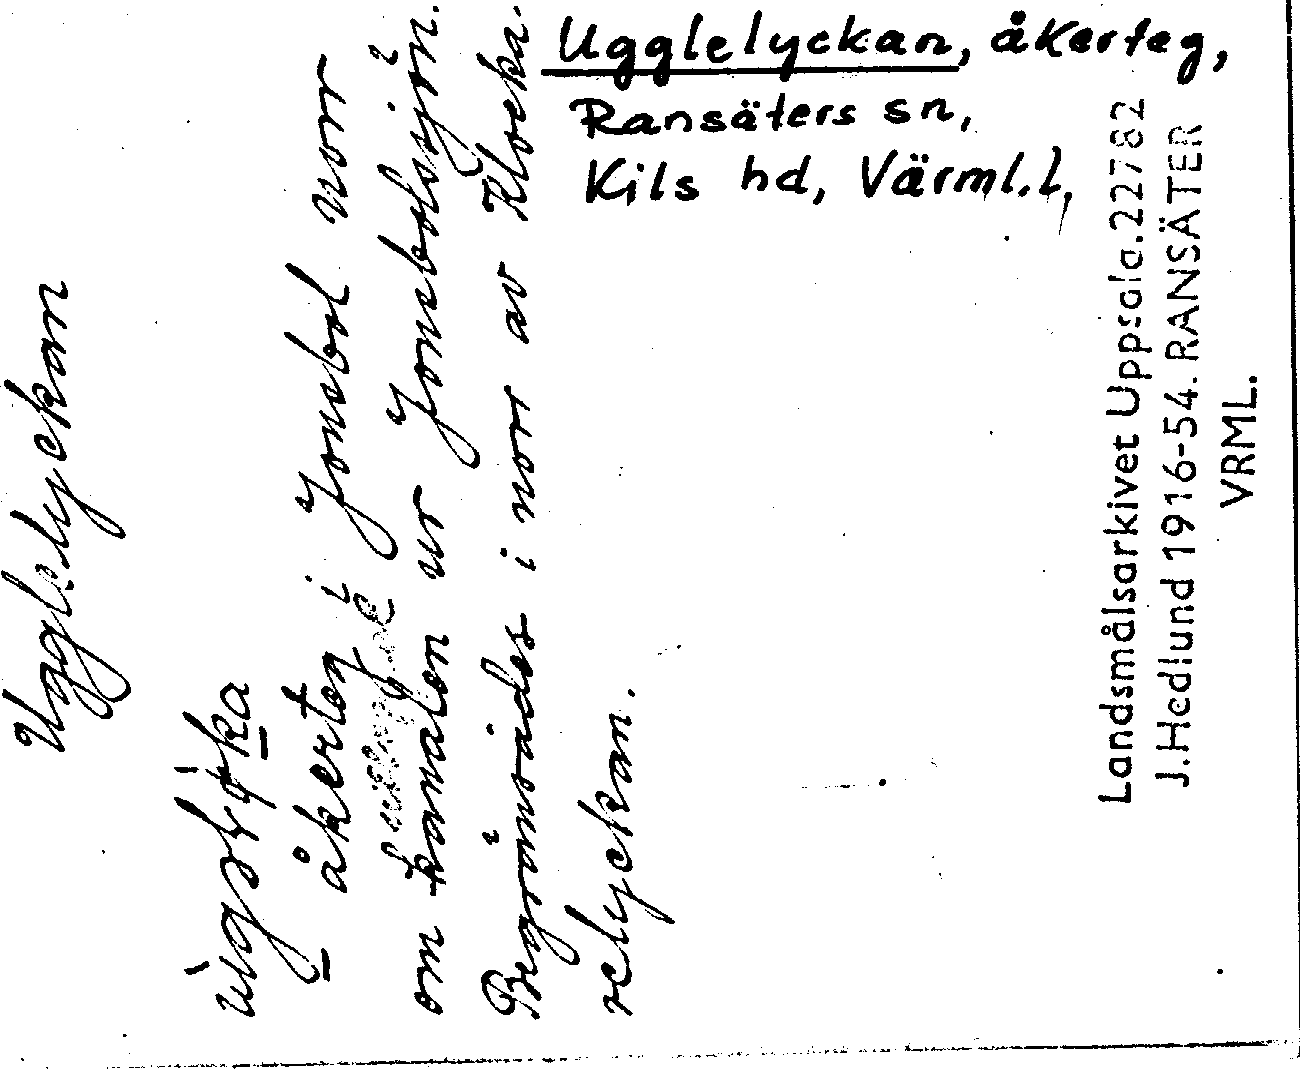 Ugglelyckan, åkerteg,
Ransäters sn,
Kils hd, Värml. l,
Ugglelyckan
åkerteg i Jonsbol norr
om kanalen ur Jonsbolssjön.
Begränsades i norr av Klocka-
relyckan.
Landsmålsarkivet Uppsala. 22782
J. Hedlund 1916-54. RANSÄTER
VRML.